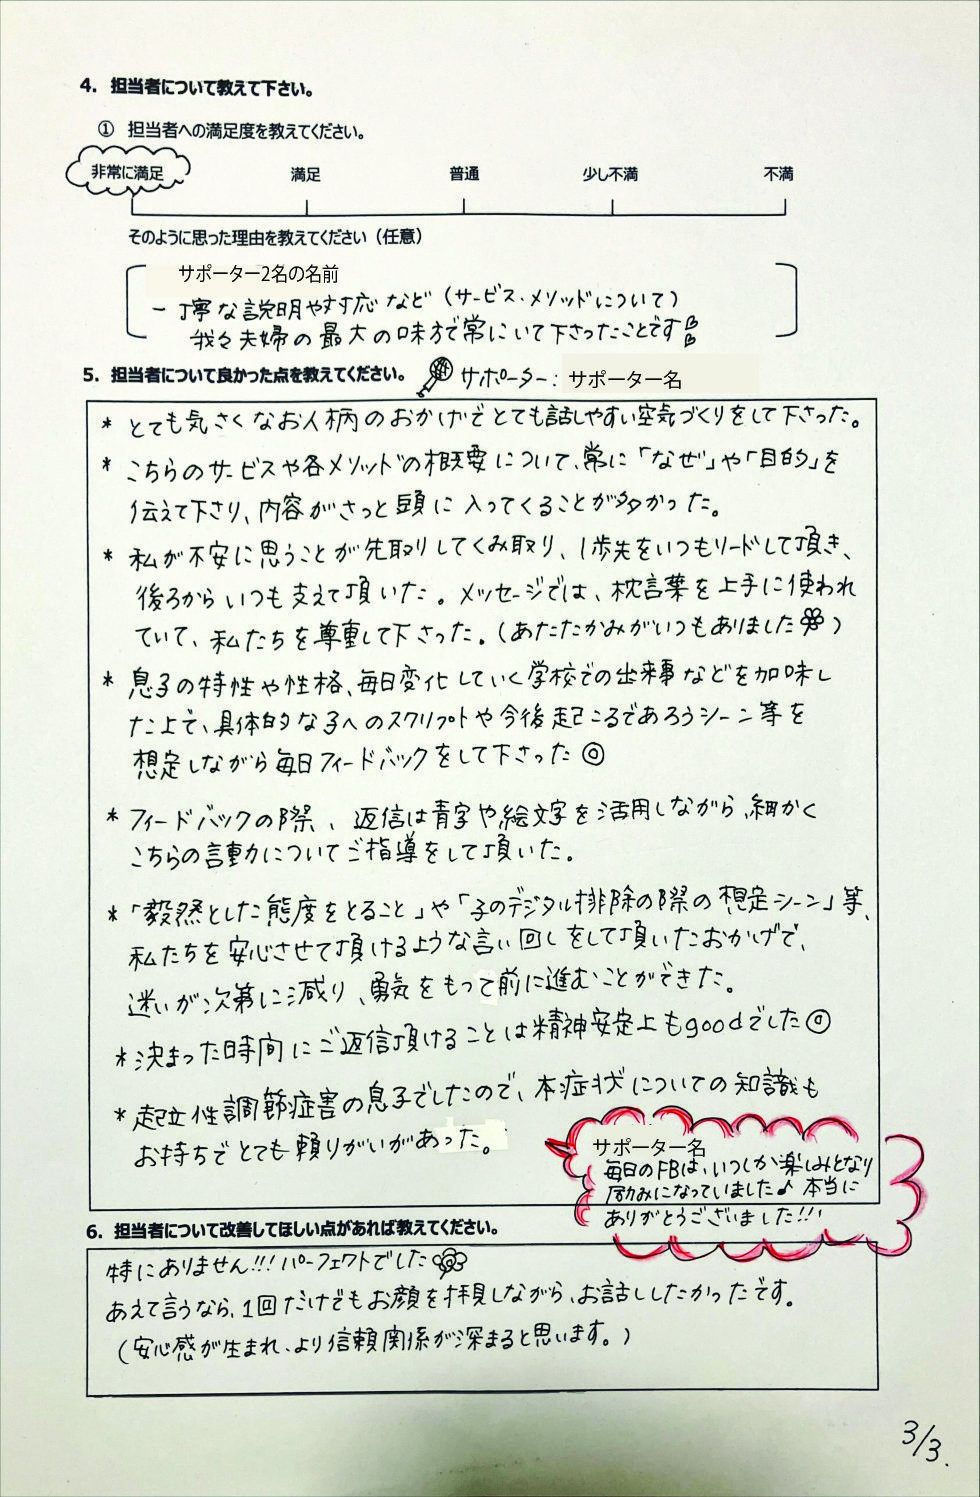 4. 担当者について教えて下さい。
① 担当者への満足度を教えてください。
非常に満足 満足 普通 少し不満 不満
そのように思った理由を教えてください（任意）
サポーター2名の名前
ー 丁寧な説明や対応など（サービス・メソッドについて）
我々夫婦の最大の味方で常にいて下さったことです
5. 担当者について良かった点を教えてください。 サポーター： サポーター名
* とても気さくなお人柄のおかげでとても話しやすい空気づくりをして下さった。
* こちらのサービスや各メソッドの概要について、常に「なぜ」や「目的」を
伝えて下さり、内容がさっと頭に入ってくることが多かった。
* 私が不安に思うことが先取りしてくみ取り、1歩先をいつもリードして頂き、
後ろからいつも支えて頂いた。メッセージでは、枕言葉を上手に使われ
ていて、私たちを尊重して下さった。（あたたかみがいつもありました）
* 息子の特性や性格、毎日変化していく学校での出来事などを加味し
た上で、具体的な子へのスクリプトや今後起こるであろうシーン等を
想定しながら毎日フィードバックをして下さった◎
* フィードバックの際、返信は青字や絵文字を活用しながら、細かく
こちらの言動についてご指導をして頂いた。
* 「毅然とした態度をとること」や「子のデジタル排除の際の想定シーン」等、
私たちを安心させて頂けるような言い回しをして頂いたおかげで、
迷いが次第に減り、勇気をもって前に進むことができた。
* 決まった時間にご返信頂けることは精神安定上もgoodでした◎
* 起立性調節症害の息子でしたので、本症状についての知識も
お持ちでとても頼りがいがあった。
サポーター名
毎日のFBは、いつしか楽しみとなり
励みになっていました♪ 本当に
ありがとうございました!!!
6. 担当者について改善してほしい点があれば教えてください。
特にありません!!! パーフェクトでした
あえて言うなら、1回だけでもお顔を拝見しながら、お話ししたかったです。
（安心感が生まれ、より信頼関係が深まると思います。）
3/3.